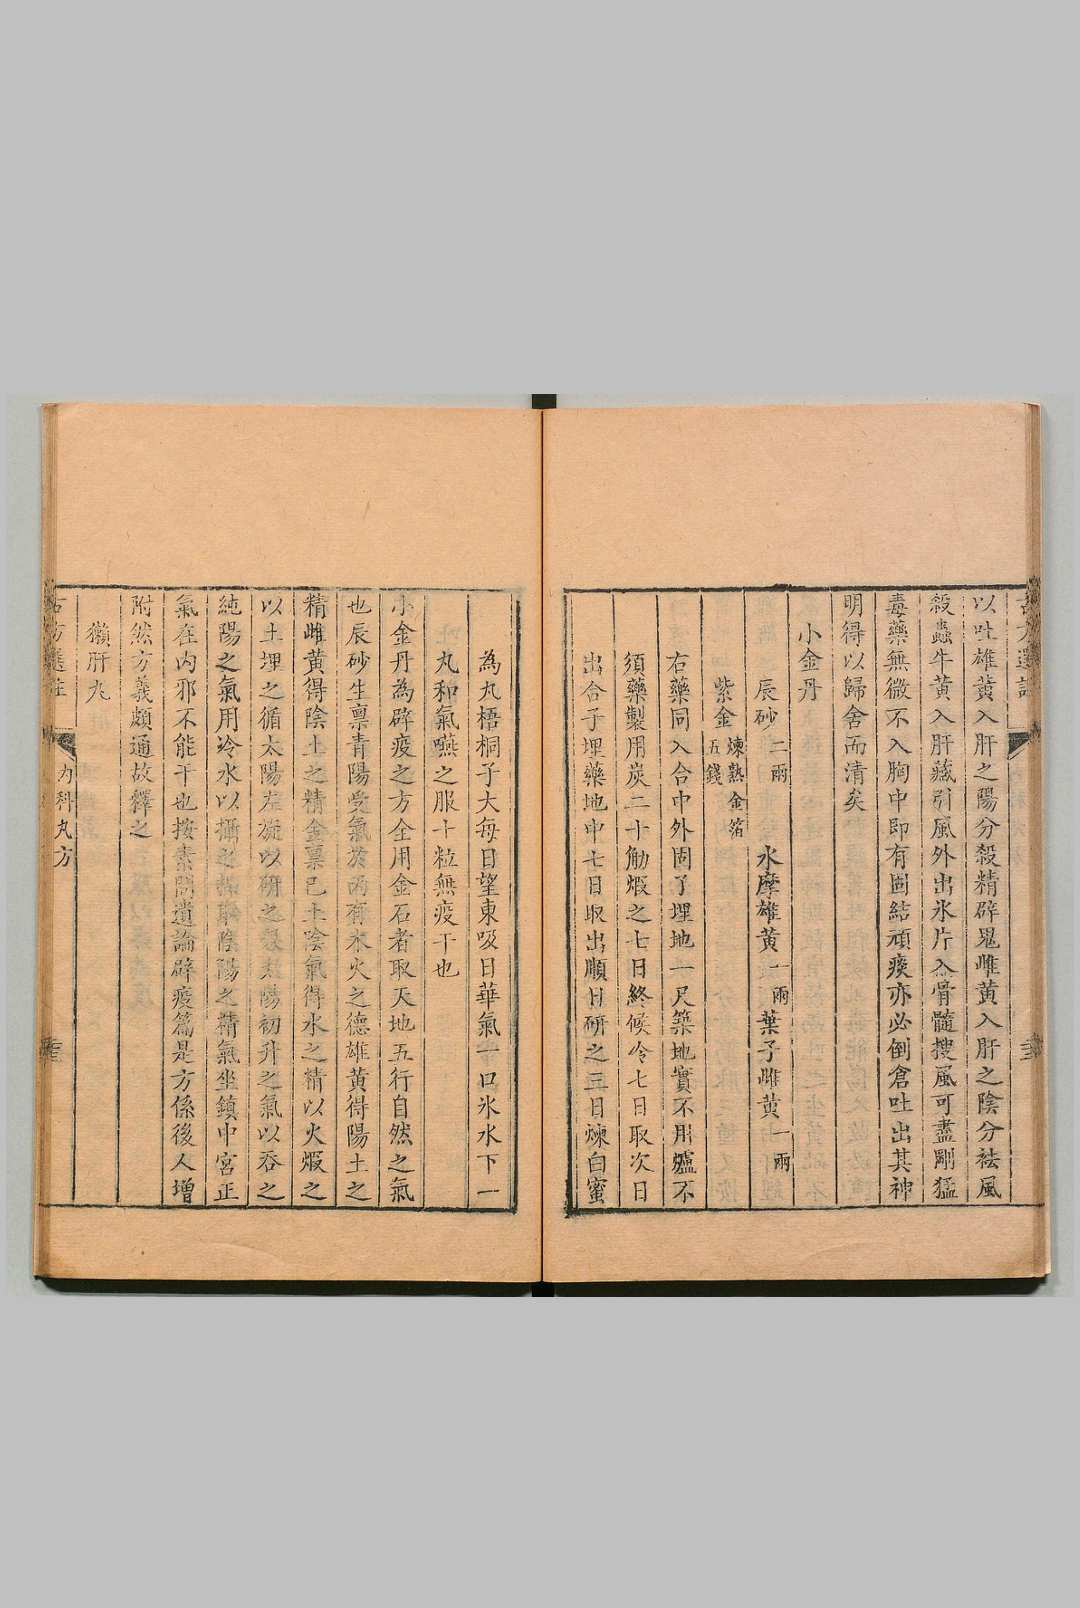 以吐雄黃入肝之陽分殺精辟鬼雌黃入肝之陰分祛風
殺蟲牛黃入肝藏引風外出氷片入骨髓搜風可盡剛猛
毒藥無微不入胸中即有固結頑痰亦必倒倉吐出其神
明得以歸舍而清矣
小金丹
辰砂二兩 水摩雄黃一兩 葉子雌黃一兩
紫金煉熟金箔五錢
右藥同入合中外固了埋地一尺築地實不用爐不
須藥製用炭二十觔煆之七日終候令七日取次日
出合子埋藥地中七日取出順日研之三日煉白蜜
為丸梧桐子大每日望東吸日華氣一口氷水下一
丸和氣嚥之服十粒無疫干也
小金丹為辟疫之方全用金石者取天地五行自然之氣
也辰砂生禀青陽受氣於丙有水火之德雄黃得陽土之
精雌黃得陰土之精金禀己土陰氣得水之精以火煆之
以土埋之循太陽左旋以研之受太陽初升之氣以吞之
純陽之氣用冷水以攝之陰陽之精氣坐鎮中宮正
氣在內邪不能干也按素問遺論辟疫篇是方係後人增
附然方義頗通故釋之
獺肝丸
古方選註 內科丸方